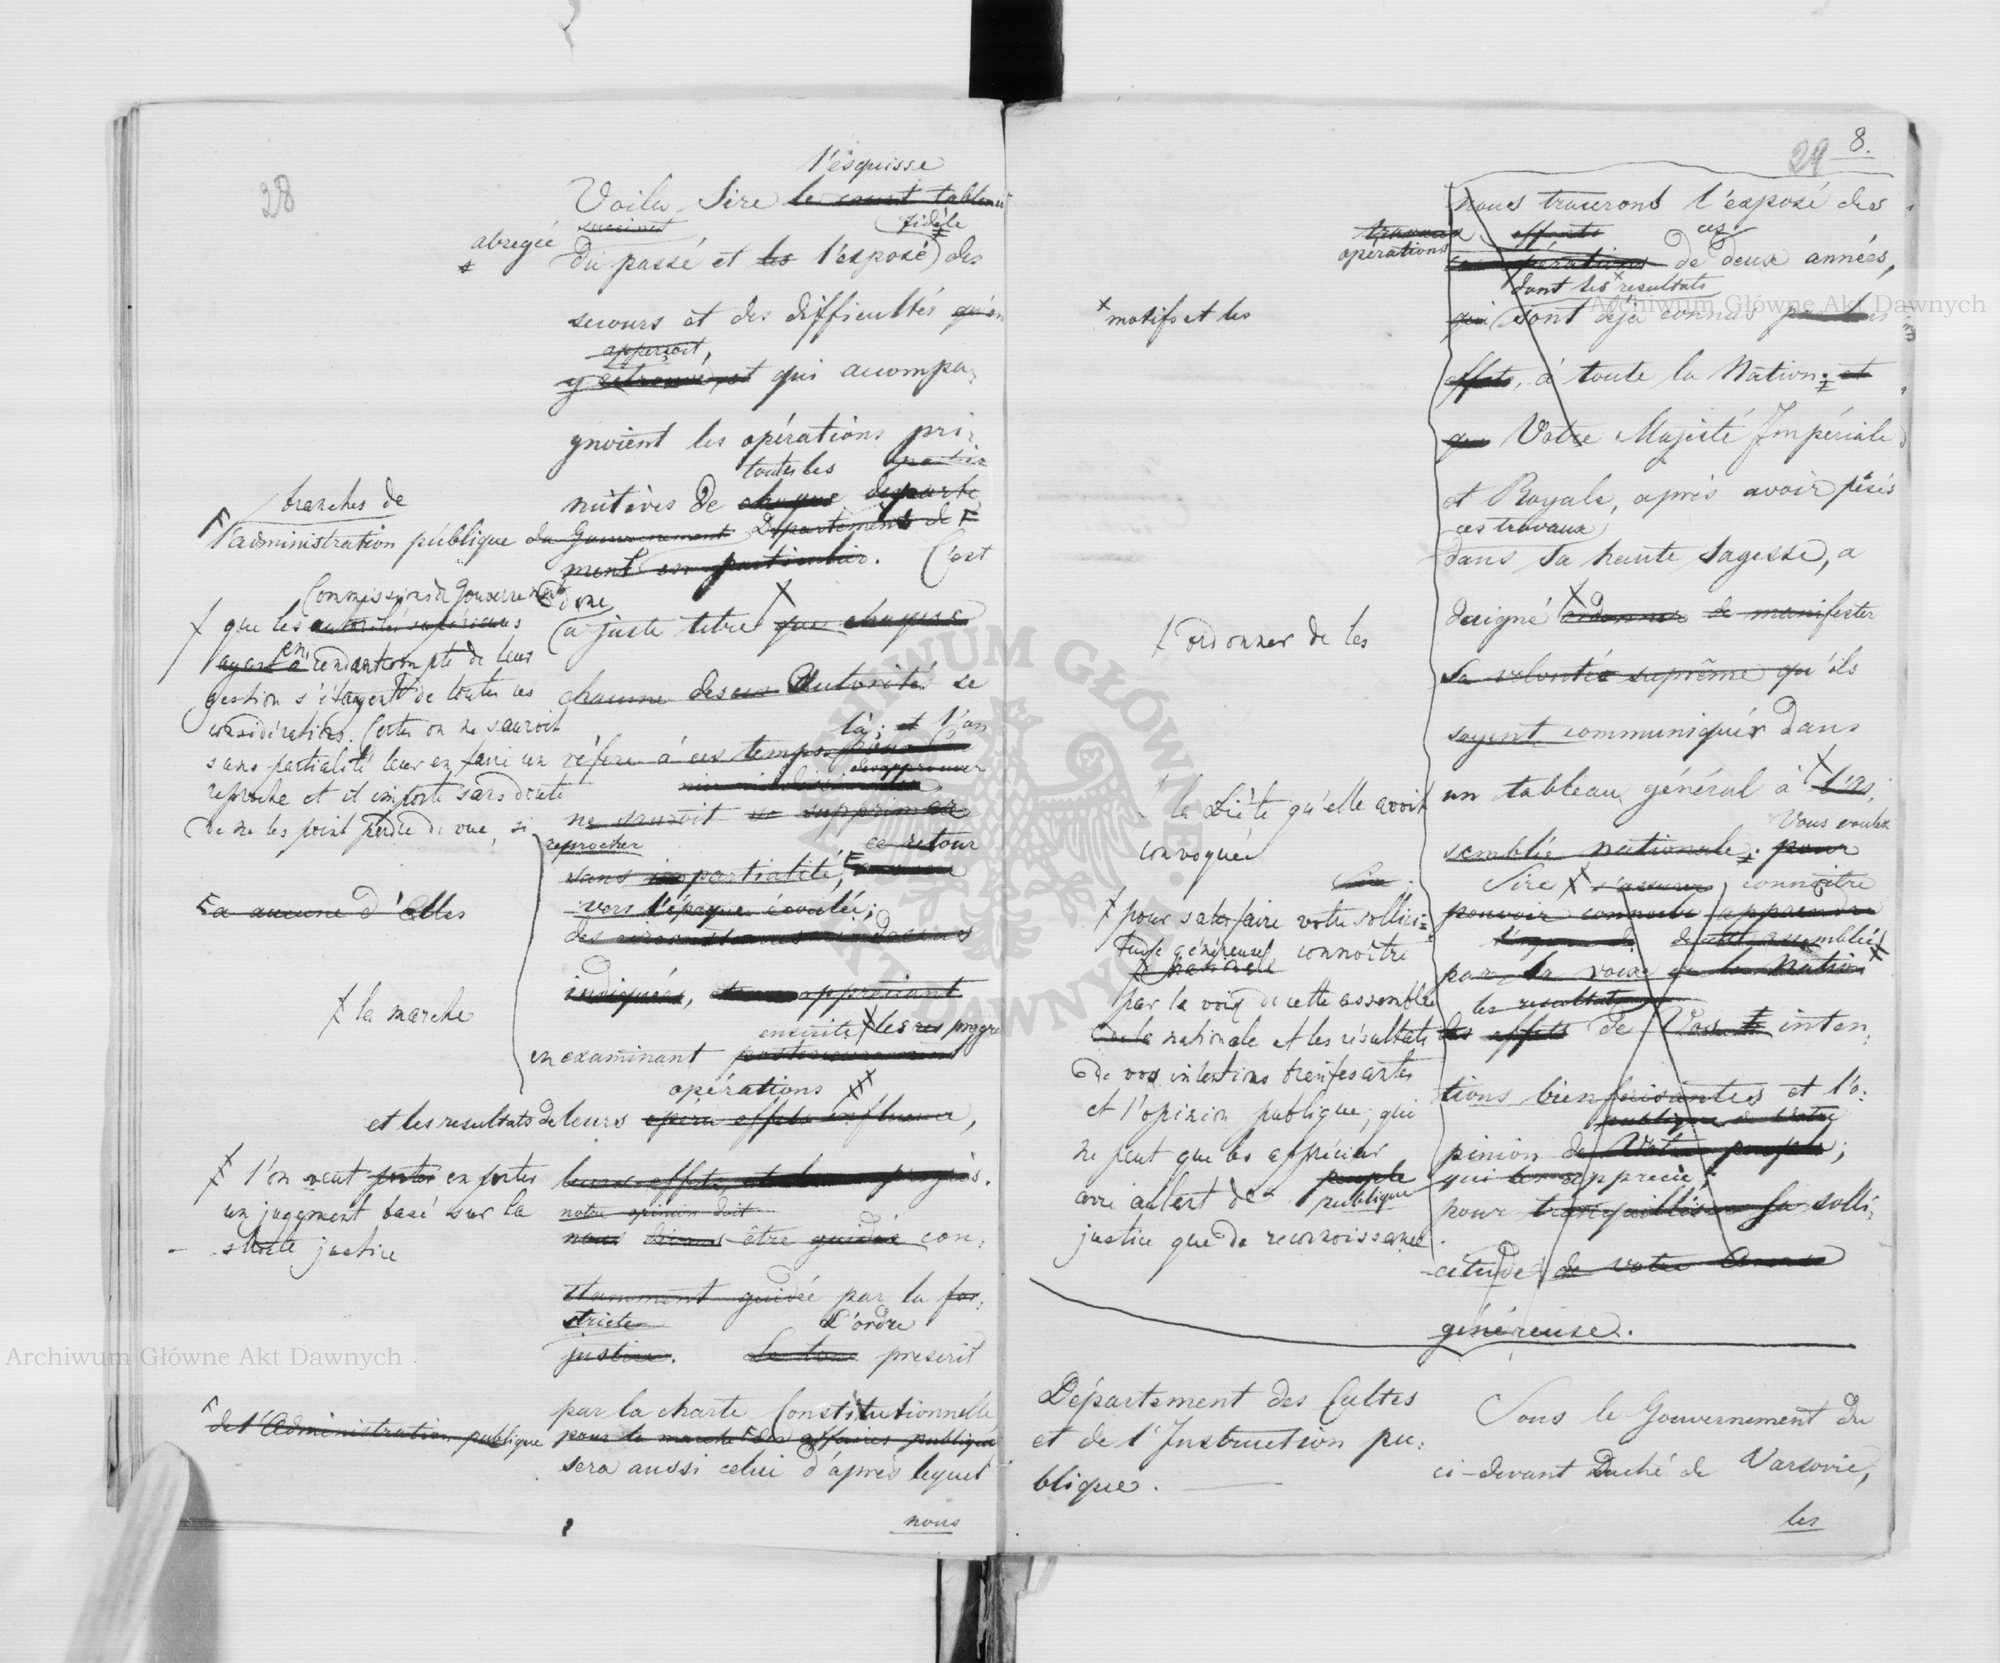 28
l'esquisse
Voila Sire le court tableau
succinct
fidèle
abregée
du passé et les l'exposé des
secours et des difficultés qu'on
apperçoit,
y retrouve, et qui accompa-
gnoient les opérations pri-
toutes les
mitives de chaque departe
branches de
l'administration publique
du Gouvernement Départements de
ment en particulier. C'est
Commissions de Gouvernement
donc
que les autorités supérieures
a juste titre que chaque
ayant à en rendant compte de leur
gestion s'étayent de toutes ces
chacune des ces Autorités se
considérations. Certes on ne sauroit
là; et l'on
sans partialité leur en faire un
réfere à ces temps
desapprouver
reproche et il importe sans doute
ne sauroit se supprimer
de ne les point perdre de vue, si
reprocher
ce retour
sans impartialité,
a aucune d'Elles
vers l'époque écoulée;
des circonstances ci-dessus
indiquées, appréciant
la marche
ensuite les progrès
en examinant posterieurement
opérations
et les resultats de leurs opéra effets influence,
l'on veut porter en porter
leurs effets, et leur progrès.
un jugement basé sur la
notre opinion doit
nous devons être guidée con-
stricte justice
stamment guidée par la
stricte
L'ordre
justice. Le tems prescrit
par la charte Constitutionnelle
de l'Administration publique
pour la marche des affaires publiques
sera aussi celui d'après lequel
nous
29
8.
nous tracerons l'exposé des
travaux
efforts
ces
opérations
opérations de deux années,
dont les resultats
motifs et les
qui sont déjà connus par leurs
effets, à toute la Nation; et
que Votre Majesté Impériale
et Royale, après avoir pésés
ces travaux
dans Sa haute Sagesse, a
daigné ordonner de manifester
ordonner de les
Sa volonté suprême qu'ils
soyent communiqués dans
un tableau général à l'As-
la Diète qu'elle avoit
convoquée
Vous voulez
semblée nationale; pour
Sire
Sire s'assurer connoître
pour satisfaire votre sollici-
pouvoir connoitre apprendre
tude généreuse connoitre
de cette assemblée
par la voix de la Nation
par la voix de cette assemblée
les resultats
nationale et les résultats
les effets de Vos inten-
de vos intentions bienfesantes
tions bienfaisantes et l'o-
et l'opinion publique, qui
publique de Votre
ne peut que les apprécier
pinion de Votre peuple;
peuple
qui les apprecie;
avec autant de
publique
pour tranquilliser Sa solli-
justice que de reconnoissance.
citude de votre
généreuse.
Département des Cultes
et de l'Instruction pu-
blique.
Sous le Gouvernement du
ci-devant Duché de Varsovie,
les
Archiwum Główne Akt Dawnych
Archiwum Główne Akt Dawnych
ARCHIWUM GŁÓWNE AKT DAWNYCH